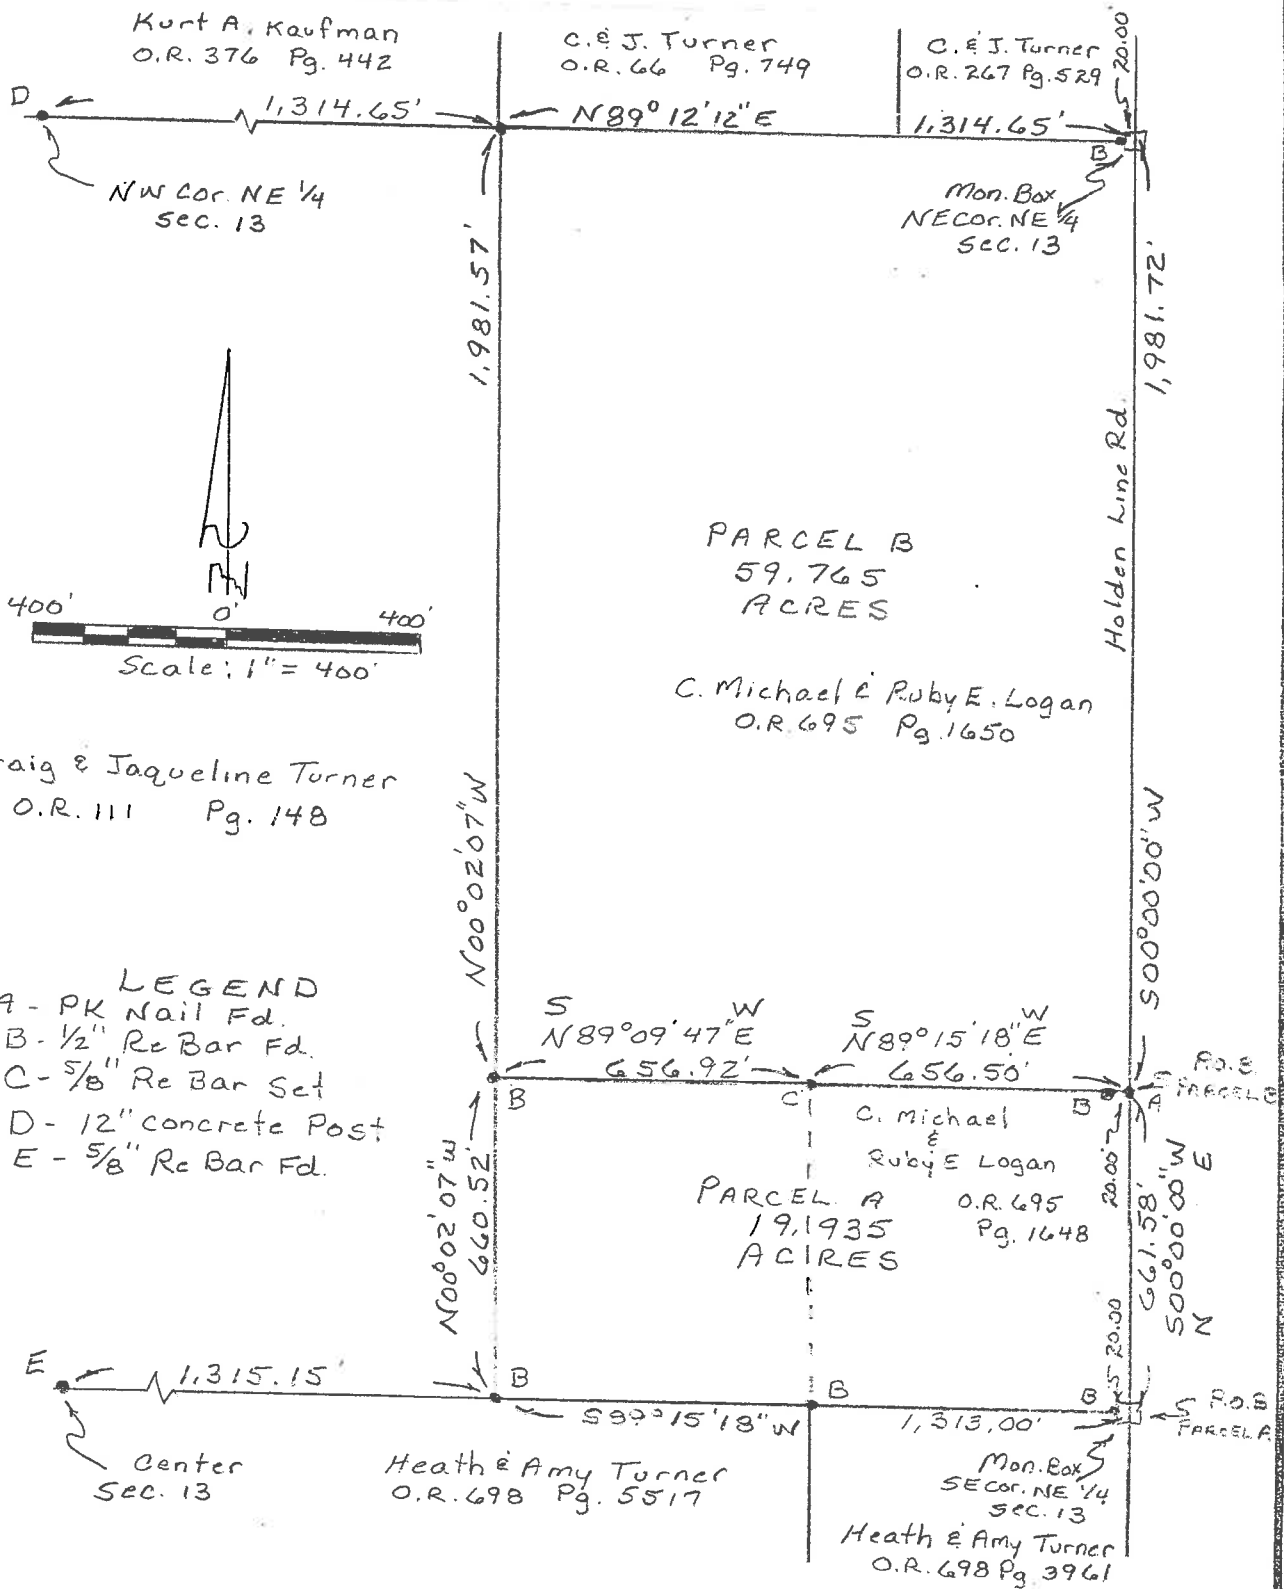 Kurt A. Kaufman
O.R. 376 Pg. 442
C. & J. Turner
O.R. 66 Pg. 749
C. & J. Turner
O.R. 267 Pg. 529
20.00
D
1,314.65'
N89°12'12"E
1,314.65'
B
NW Cor. NE 1/4
Sec. 13
Mon. Box
NE Cor. NE 1/4
Sec. 13
1,981.57'
1,981.72'
Holden Line Rd.
N
400' 0' 400'
Scale: 1" = 400'
PARCEL B
59.765
ACRES
C. Michael & Ruby E. Logan
O.R. 695 Pg. 1650
raig & Jaqueline Turner
O.R. 111 Pg. 148
N00°02'07"W
S00°00'00"W
LEGEND
A - PK Nail Fd.
B - 1/2" Re Bar Fd.
C - 5/8" Re Bar Set
D - 12" Concrete Post
E - 5/8" Re Bar Fd.
S W
N89°09'47"E
656.92'
S W
N89°15'18"E
656.50'
B
C
B
A
P.O.B.
PARCEL B
C. Michael
&
Ruby E Logan
O.R. 695
Pg. 1648
20.00'
PARCEL A
19.1935
ACRES
N00°02'07"W
660.52'
661.58'
S00°00'00"W
N E
20.00
E
1,315.15'
B
B
B
S89°15'18"W
1,313.00'
P.O.B
PARCEL A
Center
Sec. 13
Heath & Amy Turner
O.R. 698 Pg. 5517
Mon. Box
SE Cor. NE 1/4
Sec. 13
Heath & Amy Turner
O.R. 698 Pg 3961